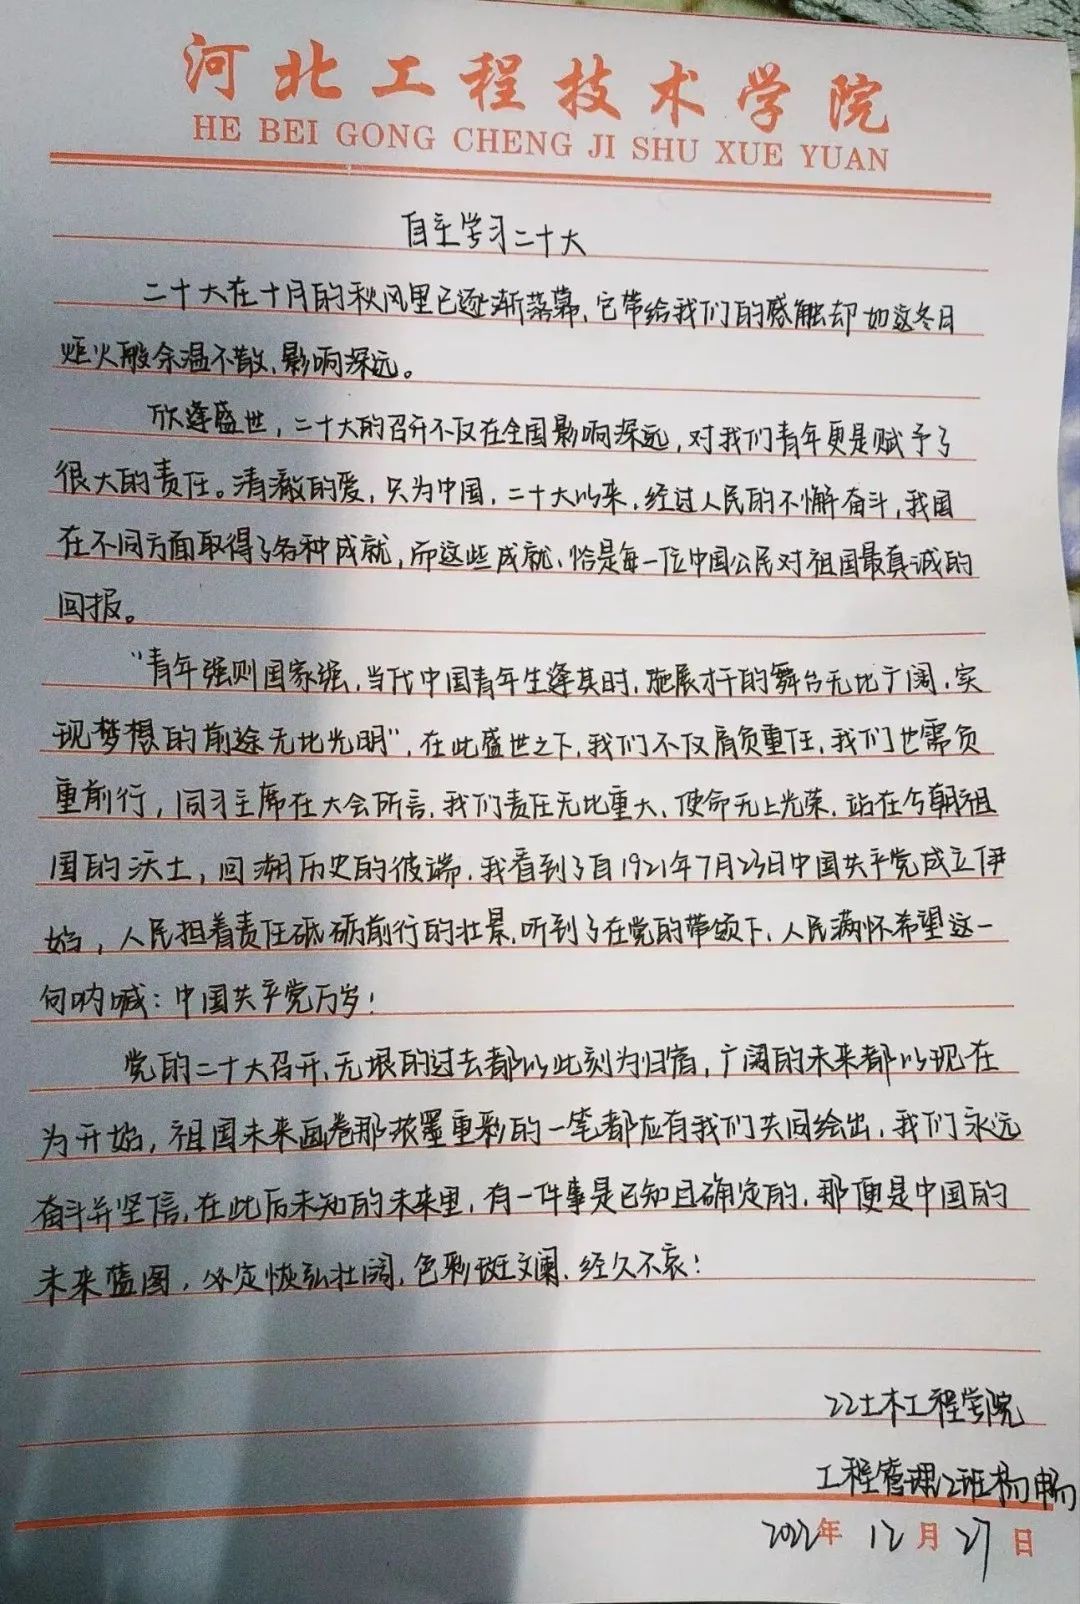 河北工程技术学院
HE BEI GONG CHENG JI SHU XUE YUAN
自主学习二十大
二十大在十月的秋风里已逐渐落幕,它带给我们的感触却如这冬日
炬火般余温不散,影响深远。
欣逢盛世,二十大的召开不仅在全国影响深远,对我们青年更是赋予了
很大的责任。清澈的爱,只为中国,二十大以来,经过人民的不懈奋斗,我国
在不同方面取得了各种成就,而这些成就,恰是每一位中国公民对祖国最真诚的
回报。
“青年强则国家强,当代中国青年生逢其时,施展才干的舞台无比广阔,实
现梦想的前途无比光明”,在此盛世之下,我们不仅肩负重任,我们也需负
重前行,同习主席在大会所言,我们责任无比重大、使命无上光荣,站在今朝祖
国的沃土,回溯历史的彼端,我看到了自1921年7月23日中国共产党成立伊
始,人民担着责任砥砺前行的壮景,听到了在党的带领下,人民满怀希望这一
句呐喊:中国共产党万岁!
党的二十大召开,无垠的过去都以此刻为归宿,广阔的未来都以现在
为开始,祖国未来画卷那浓墨重彩的一笔都应有我们共同绘出,我们永远
奋斗并坚信,在此后未知的未来里,有一件事是已知且确定的,那便是中国的
未来蓝图,必定恢弘壮阔,色彩斑斓、经久不衰!
22土木工程学院
工程管理2班杨畅
2022年12月27日